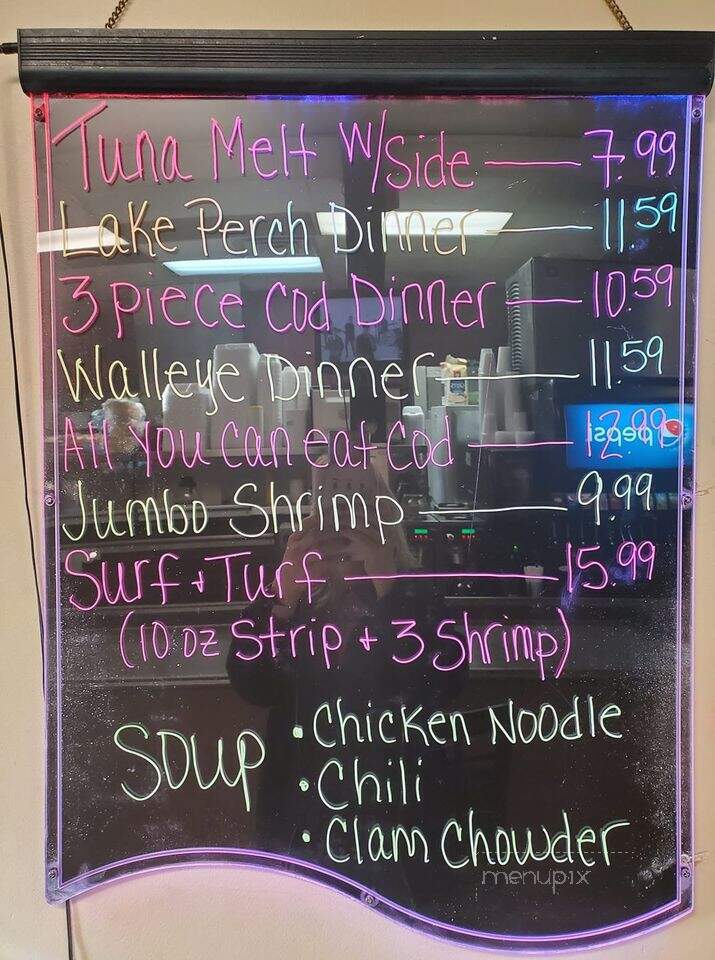 Tuna Melt W/Side — 7.99
Lake Perch Dinner — 11.59
3 piece Cod Dinner — 10.59
Walleye Dinner — 11.59
All You Can eat Cod — 12.99
pepsi
Jumbo Shrimp — 9.99
Surf + Turf — 15.99
(10 oz Strip + 3 Shrimp)
Soup • Chicken Noodle
• Chili
• Clam Chowder
menupix